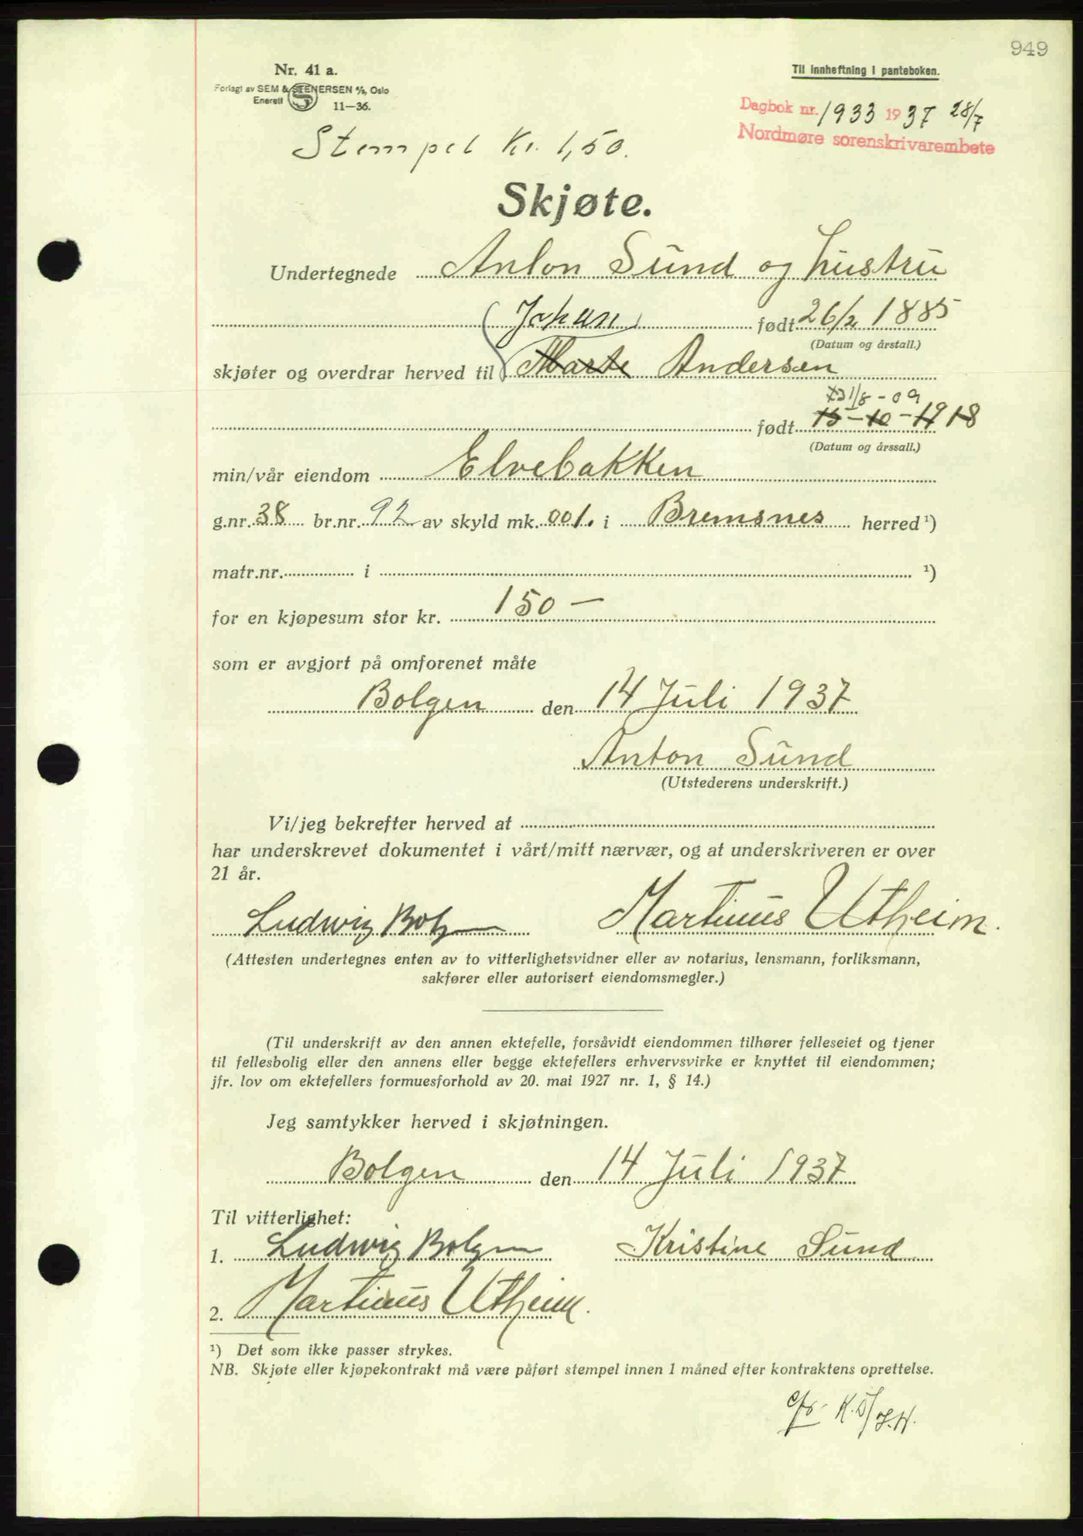 949
Nr. 41 a.
Forlagt av SEM & STENERSEN A/S, Oslo
Enerett S 11—36.
Til innheftning i panteboken.
Dagbok nr. 1933 1937 28/7
Nordmøre sorenskrivarembete
Stempel Kr. 1,50.
Skjøte.
Undertegnede Anton Sund og hustru
født 26/2 1885
(Datum og årstall.)
Johan
skjøter og overdrar herved til Marte Andersen
31/8 - 09
født 15-10-1918
(Datum og årssall.)
min/vår eiendom Elvebakken
g.nr. 38 br.nr. 92 av skyld mk. 001. i Bremsnes herred ¹)
matr.nr. i ¹)
for en kjøpesum stor kr. 150 —
som er avgjort på omforenet måte
Bolgen den 14 Juli 1937
Anton Sund
(Utstederens underskrift.)
Vi/jeg bekrefter herved at
har underskrevet dokumentet i vårt/mitt nærvær, og at underskriveren er over
21 år.
Ludwig Bolgen Martinus Utheim.
(Attesten undertegnes enten av to vitterlighetsvidner eller av notarius, lensmann, forliksmann,
sakfører eller autorisert eiendomsmegler.)
(Til underskrift av den annen ektefelle, forsåvidt eiendommen tilhører felleseiet og tjener
til fellesbolig eller den annens eller begge ektefellers erhvervsvirke er knyttet til eiendommen;
jfr. lov om ektefellers formuesforhold av 20. mai 1927 nr. 1, § 14.)
Jeg samtykker herved i skjøtningen.
Bolgen den 14 Juli 1937
Til vitterlighet:
1. Ludwig Bolgen Kristine Sund
2. Martinus Utheim.
¹) Det som ikke passer strykes.
NB. Skjøte eller kjøpekontrakt må være påført stempel innen 1 måned efter kontraktens oprettelse.